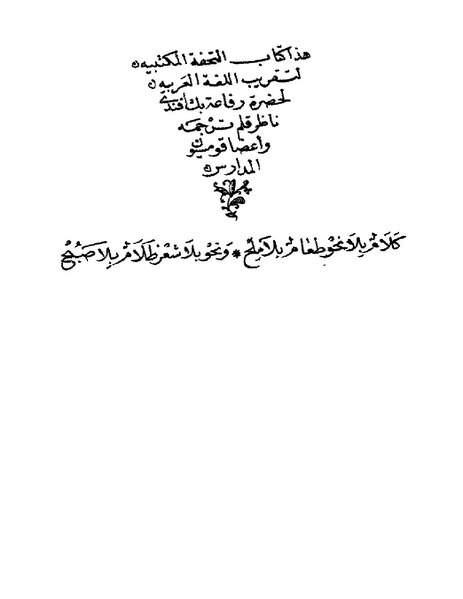 هذا كتاب التحفة المكتبيه
لتقريب اللغة العربيه
لحضرة رفاعة بك افندى
ناظر قلم ترجمه
وأعضا قومسيون
المدارس
كَلَامٌ بِلَا نَحْوٍ طَعَامٌ بِلَا مِلْحٍ * وَنَحْوٌ بِلَا شِعْرٍ ظَلَامٌ بِلَا صُبْحٍ